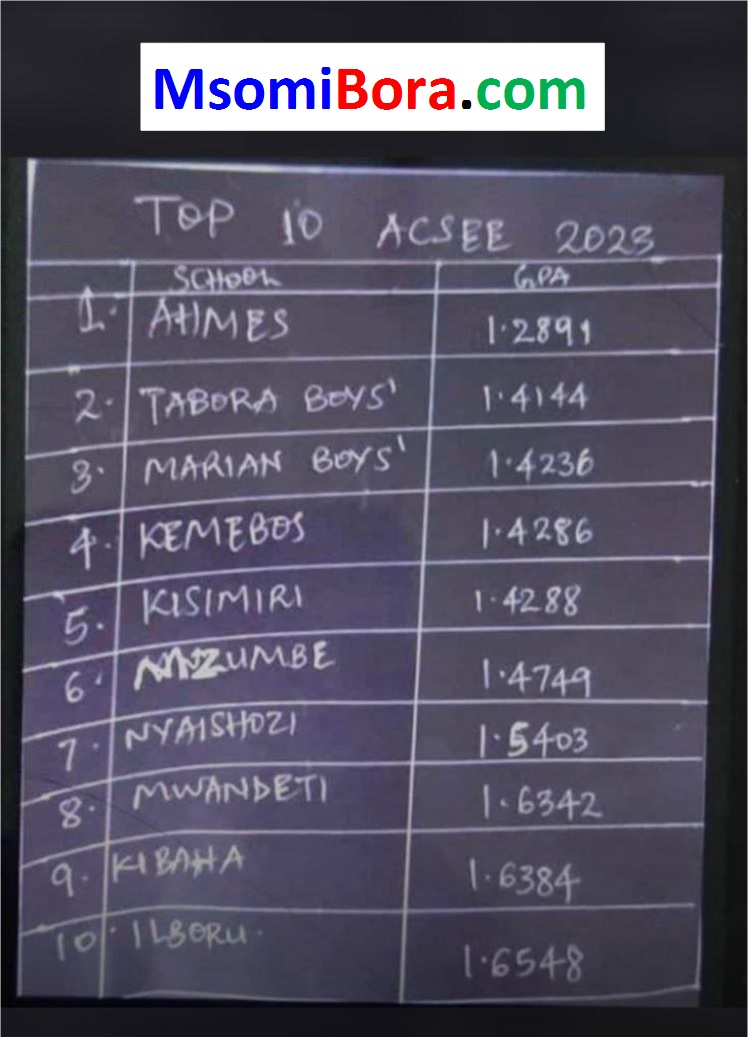 MsomiBora.com
TOP 10 ACSEE 2023
SCHOOL GPA
1. AHMES 1.2891
2. TABORA BOYS' 1.4144
3. MARIAN BOYS' 1.4236
4. KEMEBOS 1.4286
5. KISIMIRI 1.4288
6. MZUMBE 1.4749
7. NYAISHOZI 1.5403
8. MWANDETI 1.6342
9. KIBAHA 1.6384
10. ILBORU. 1.6548